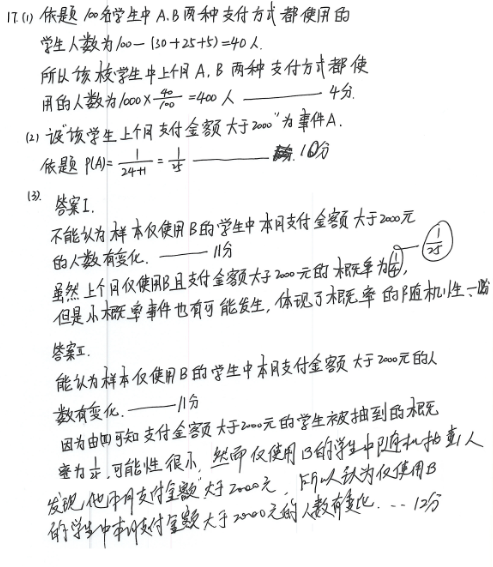 17.(1) 依题 100名学生中 A.B 两种支付方式都使用的
学生人数为100-(30+25+5)=40人.
所以该校学生中上个月A,B 两种支付方式都使
用的人数为1000×40/100=400人 ——— 4分.
(2) 设"该学生上个月支付金额大于2000"为事件A.
依题 P(A)=1/(24+1)=1/25 ——— 10分
(3). 答案I.
不能认为样本仅使用B的学生中本月支付金额大于2000元
的人数有变化. ——— 11分
虽然上个月仅使用B且支付金额大于2000元的概率为 1/25,
但是小概率事件也有可能发生,体现了概率的随机性.
答案II.
能认为样本仅使用B的学生中本月支付金额大于2000元的人
数有变化. ——— 11分
因为由(2)可知支付金额大于2000元的学生被抽到的概
率为1/25,可能性很小,然而仅使用B的学生中随机抽查1人
发现他本月支付金额大于2000元,所以认为仅使用B
的学生中本月支付金额大于2000元的人数有变化. ... 12分